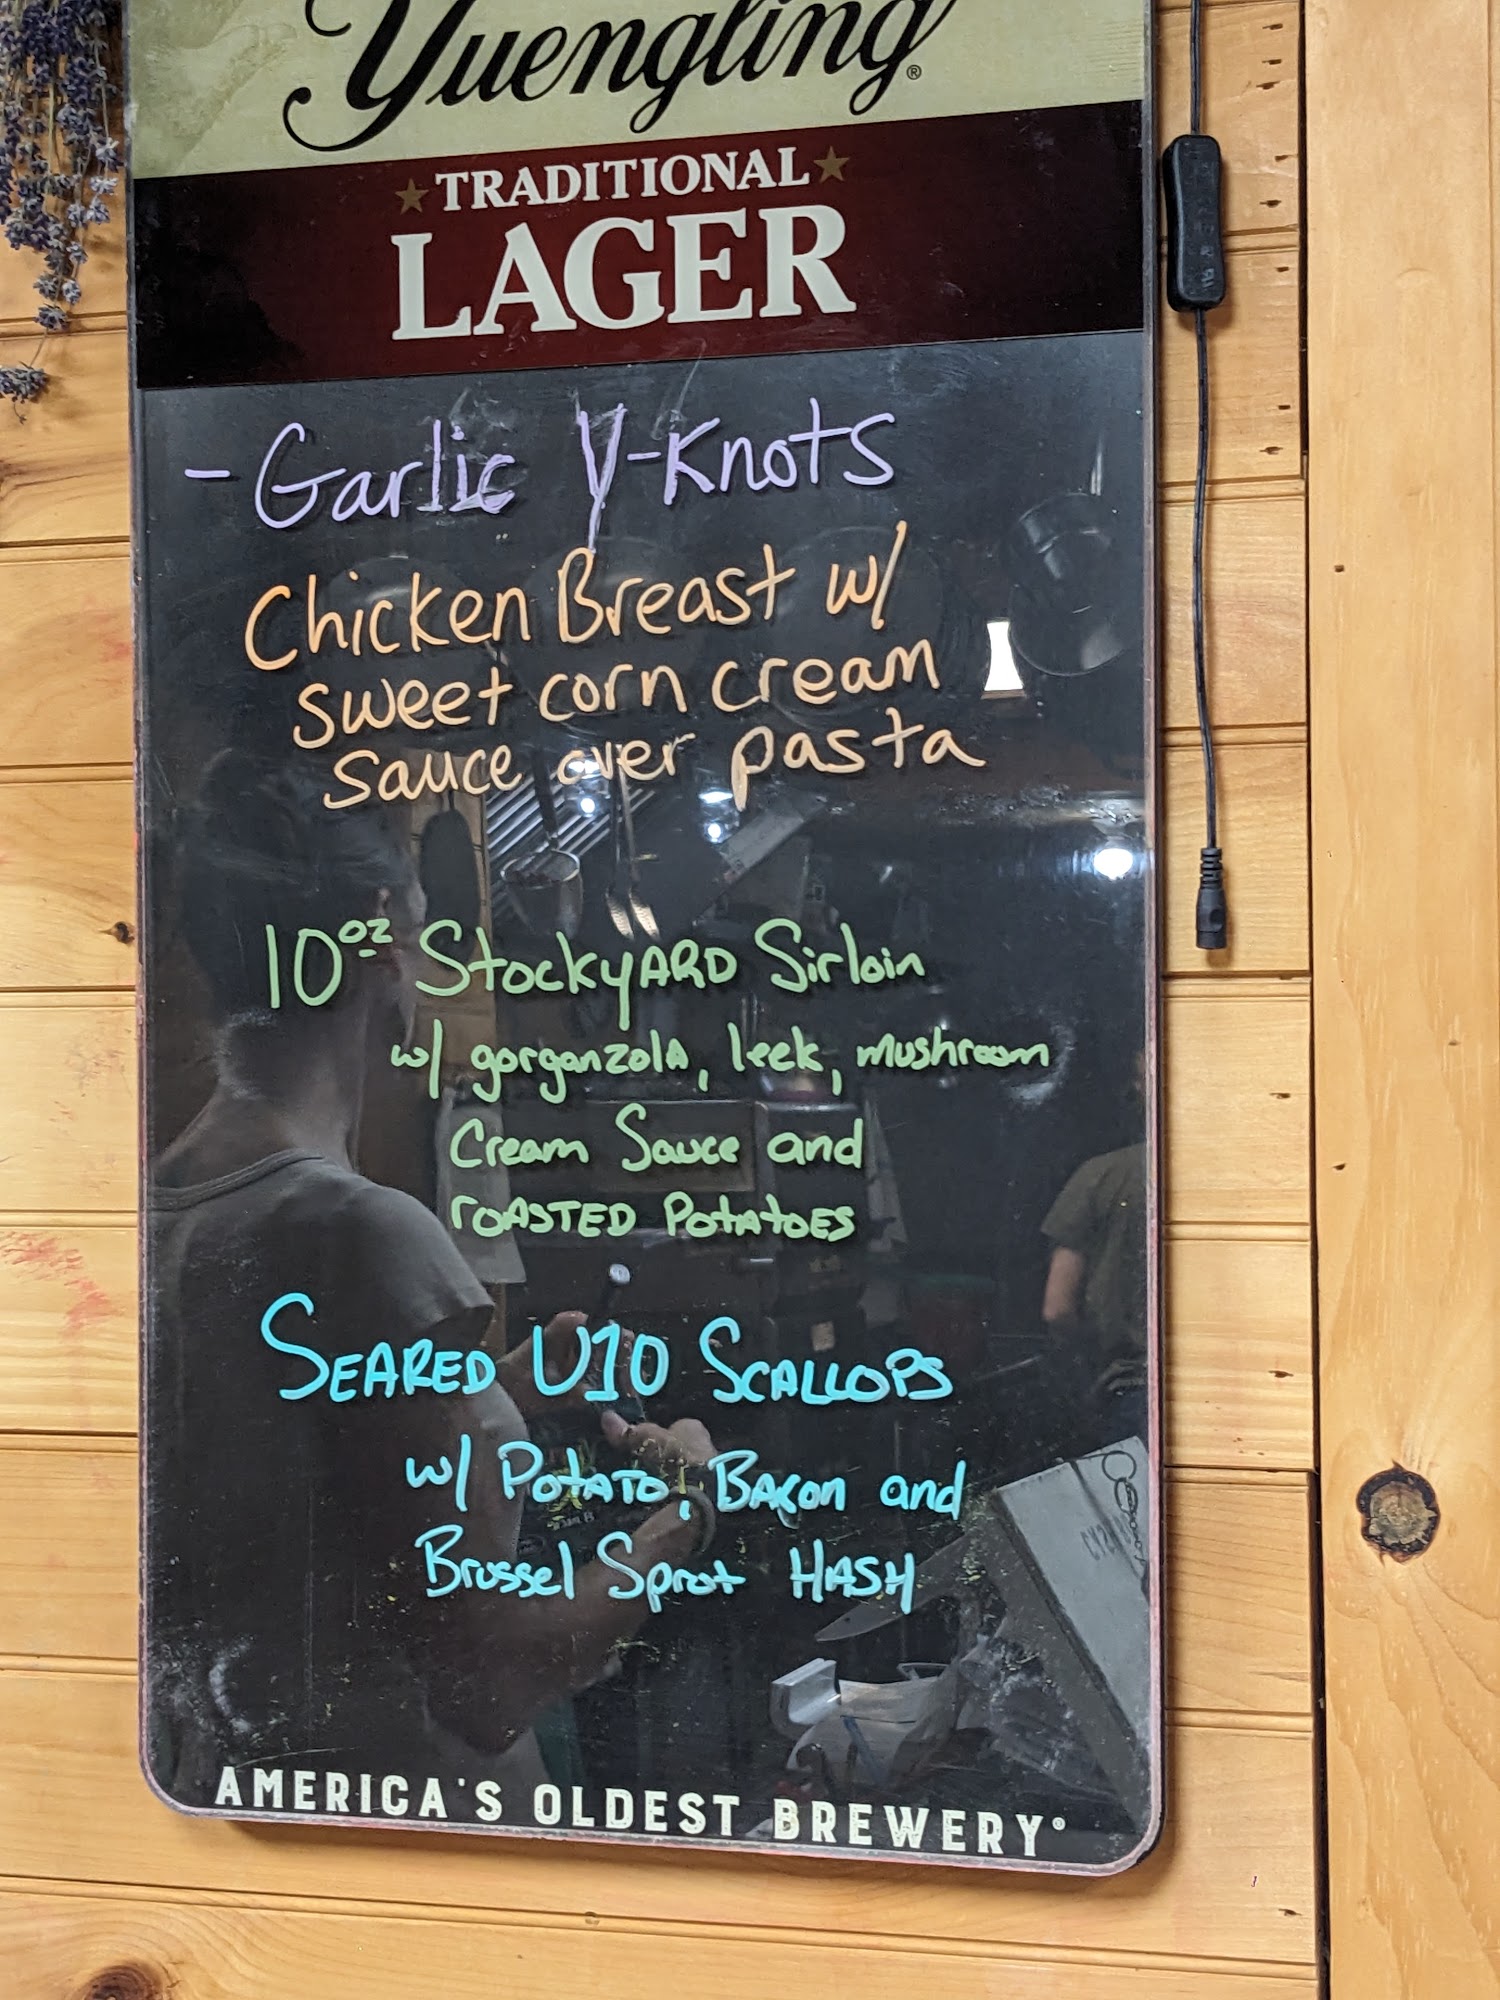 Yuengling®
TRADITIONAL
LAGER
- Garlic Y-Knots
Chicken Breast w/
sweet corn cream
sauce over pasta
10oz StockyARD Sirloin
w/ gorganzolA, leek, mushroom
Cream Sauce and
roASTED PotAtoES
SEARED U10 SCALLOPS
w/ PotATO, BACON and
Brussel Sprot HASH
AMERICA'S OLDEST BREWERY®